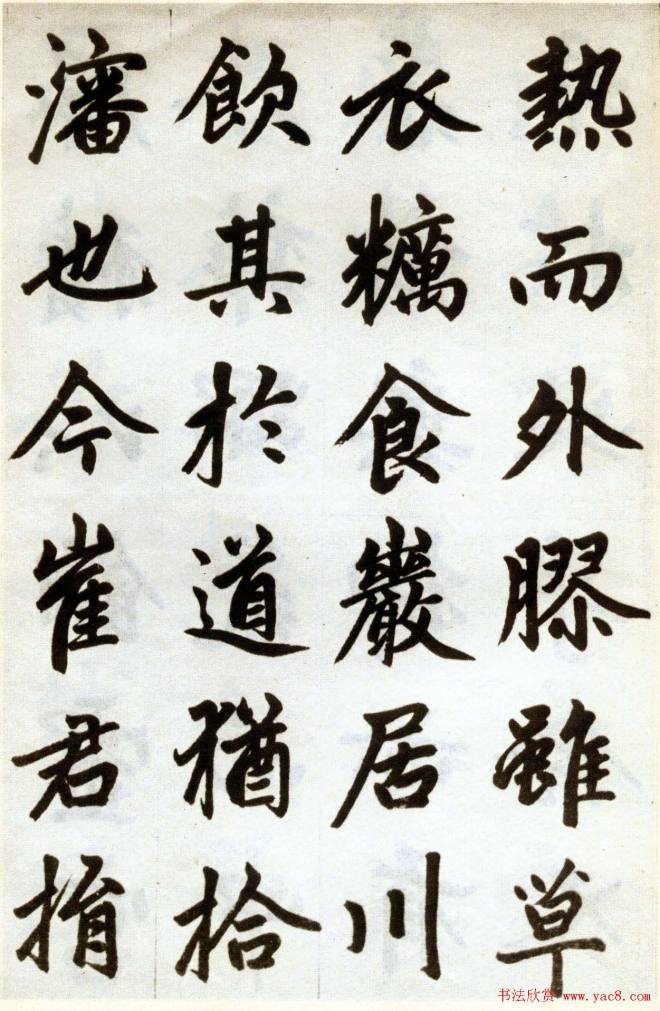 熱而外膠雖草
衣糲食巖居川
飲其於道猶拾
瀋也今崔君捐
书法欣赏 www.yac8.com